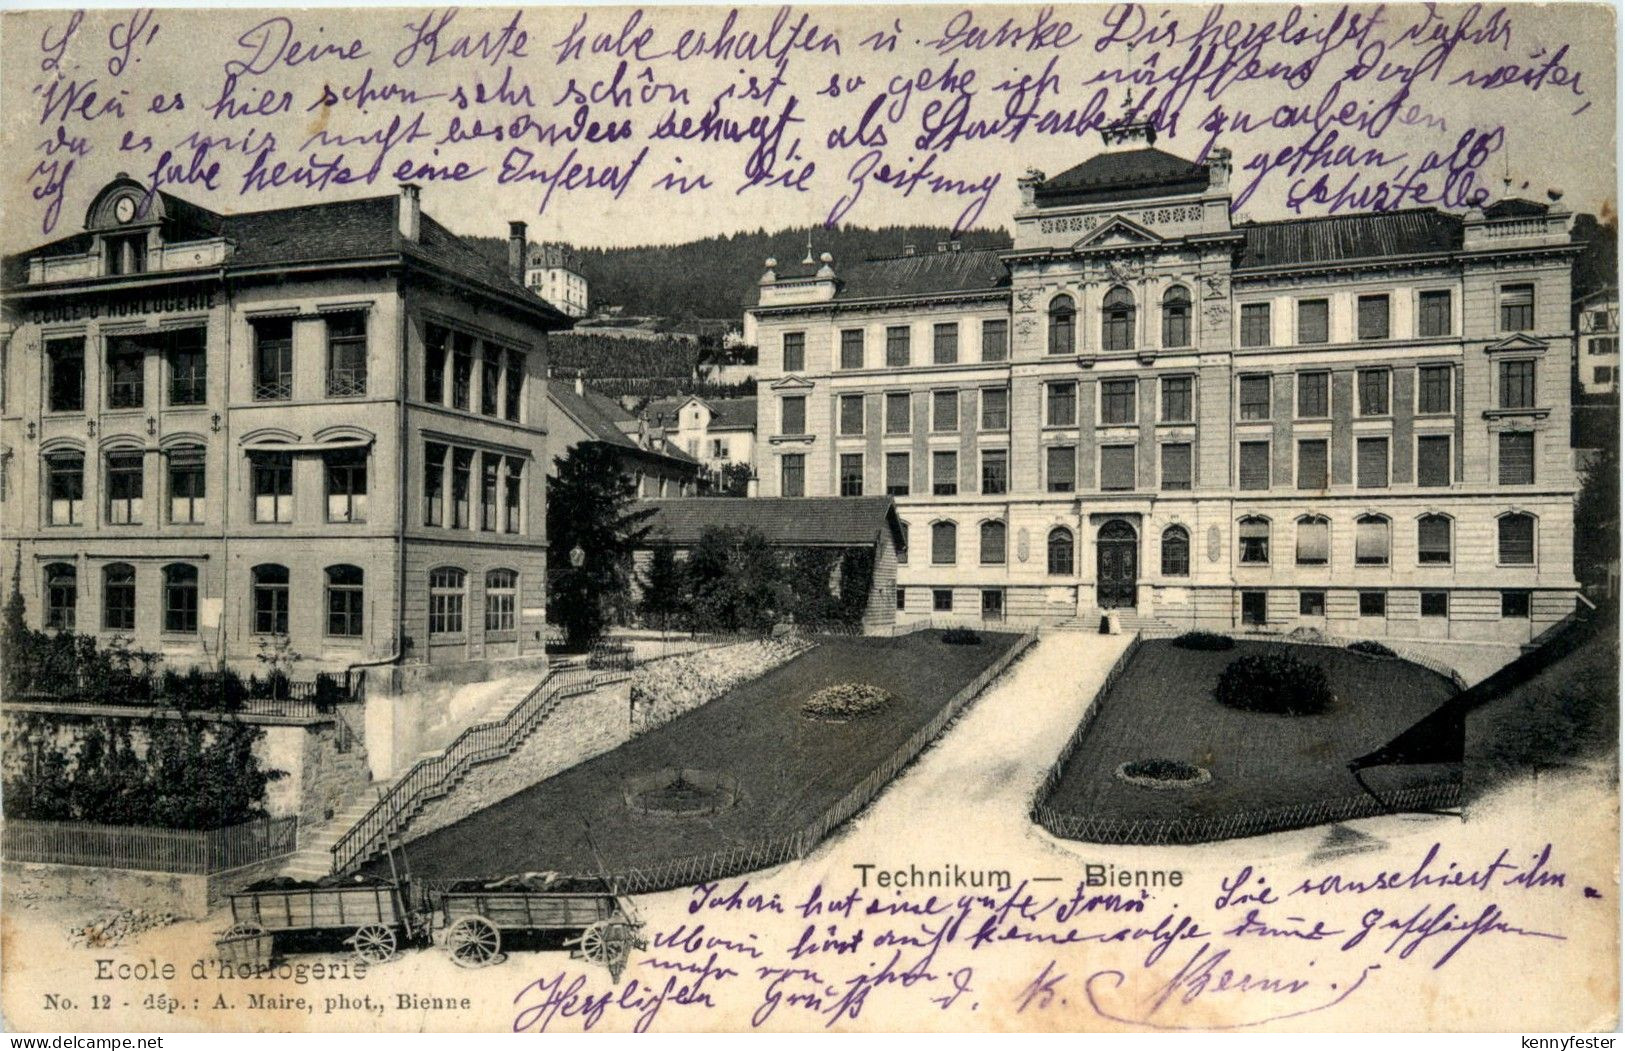 L. L! Deine Karte habe erhalten u. danke Dir herzlichst dafür
Wen es hier schon sehr schön ist, so gehe ich nächstens doch weiter,
da es mir nicht besonders behagt, als Stadtarbeiter zu arbeiten
Ich habe heute eine Inserat in die Zeitung gethan, als
ECOLE D'HORLOGERIE
Technikum — Bienne
Johan hat eine gute Frau. Sie ihm
Man hört auch keine solche dume Geschichten
mehr von ihm.
Herzlichen Gruß d. K.
Ecole d'horlogerie
No. 12 - dép.: A. Maire, phot., Bienne
delcampe.net
kennyfester